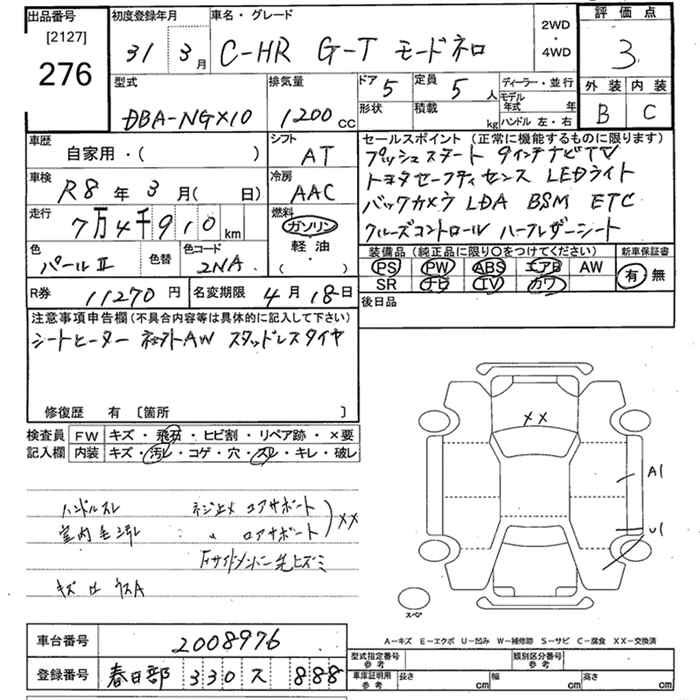 出品番号
[2127]
276
初度登録年月
31 3月
車名・グレード
C-HR G-T モードネロ
2WD
・
4WD
評価点
3
外装 内装
B C
型式
DBA-NGX10
排気量
1200 cc
ドア 5
形状
定員 5人
積載 kg
ディーラー・並行
モデル年式 年
ハンドル 左・右
車歴
自家用・( )
シフト
AT
車検
R8年3月( 日)
冷房
AAC
走行
7万4千910km
燃料
ガソリン
軽油
・( )
色
パールⅡ
色替
色コード
2NA
R券 11270円
名変期限 4月18日
セールスポイント(正常に機能するものに限ります)
プッシュスタート 9インチナビTV
トヨタセーフティセンス LEDライト
バックカメラ LDA BSM ETC
クルーズコントロール ハーフレザーシート
装備品(純正品に限り○をつけてください)
PS PW ABS エアB AW
SR ナビ TV カワ
新車保証書
有 無
後日品
注意事項申告欄(不具合内容等は具体的に記入して下さい)
シートヒーター 社外AW スタッドレスタイヤ
修復歴 有 [箇所 ]
検査員記入欄
FW キズ・飛石・ヒビ割・リペア跡・×要
内装 キズ・汚レ・コゲ・穴・スレ・キレ・破レ
ハンドルスレ ネジ止メ コアサポート
室内 〃 ロアサポート ××
Fサイドメンバー先ヒズミ
××
A1
U1
スペア
A-キズ E-エクボ U-凹み W-補修跡 S-サビ C-腐食 XX-交換済
車台番号 2008976
登録番号 春日部 330 ス 888
型式指定番号参考
類別区分番号参考
車庫証明用参考 長さ cm 幅 cm 高さ cm